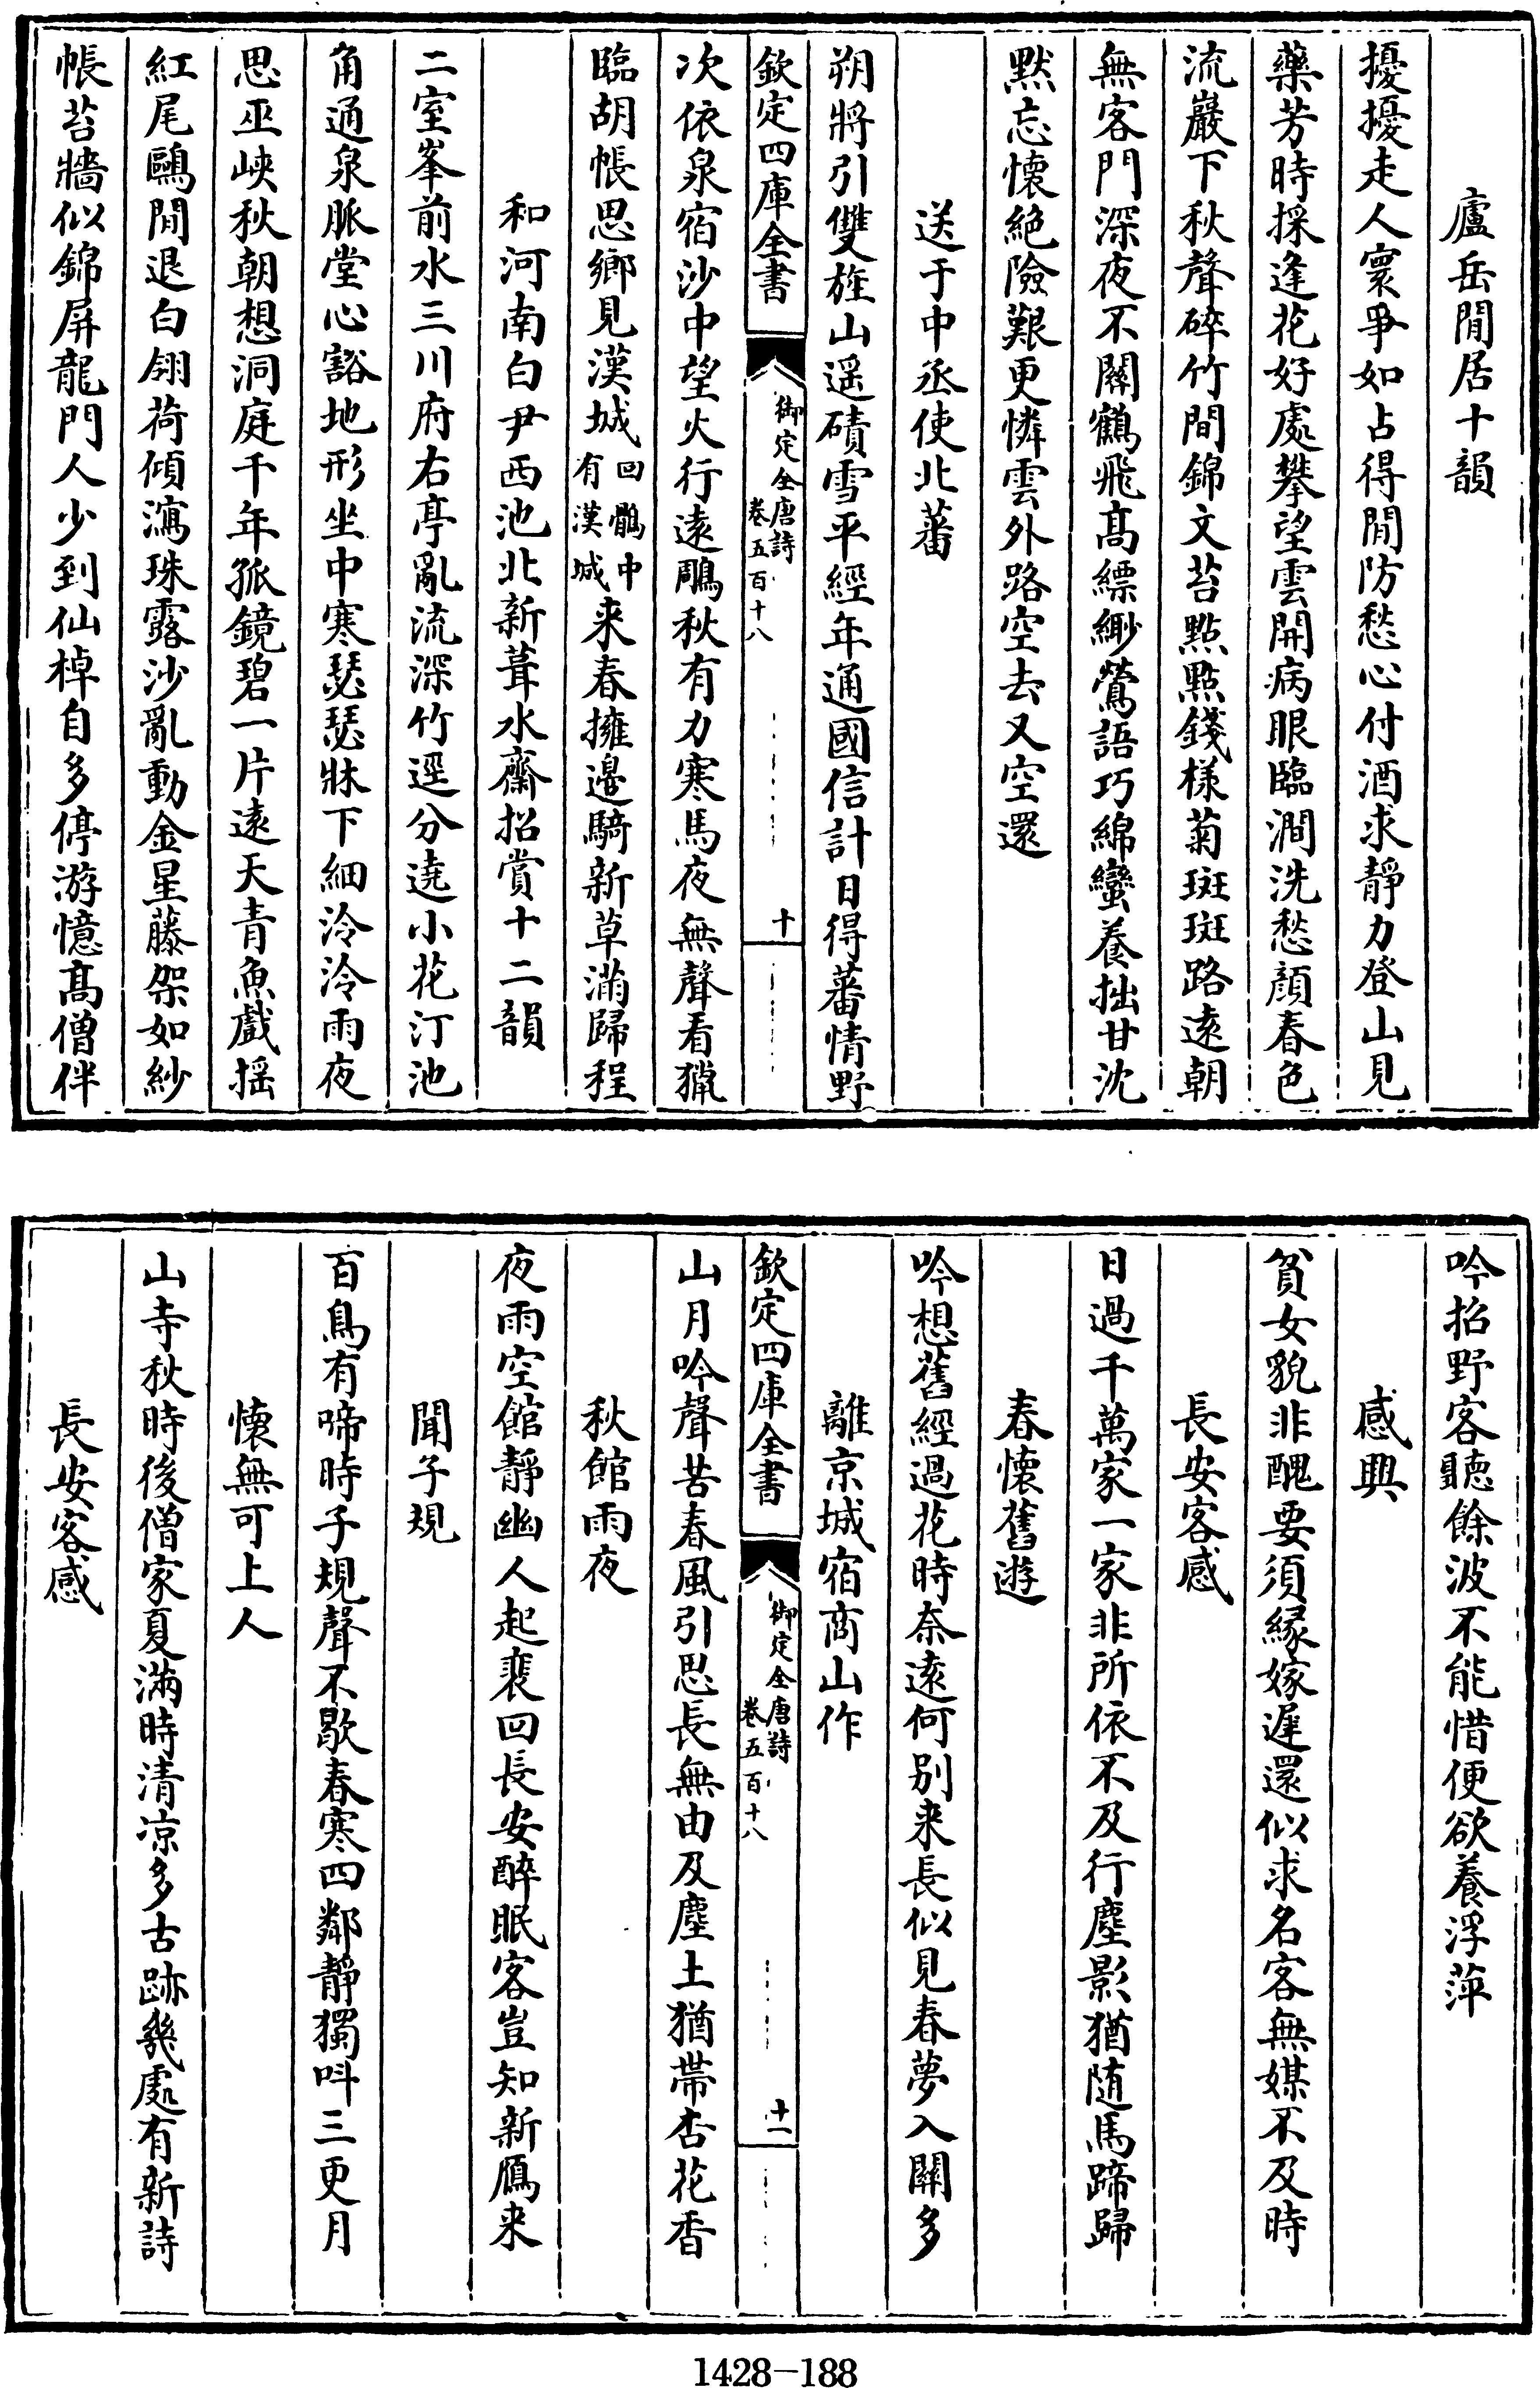 廬岳閒居十韻
擾擾走人寰爭如占得閒防愁心付酒求靜力登山見
藥芳時採逢花好處攀望雲開病眼臨澗洗愁顔春色
流巖下秋聲碎竹間錦文苔點點錢様菊斑斑路逺朝
無客門深夜不關鶴飛髙縹緲鶯語巧綿蠻養拙甘沈
黙忘懐絶險艱更憐雲外路空去又空還
送于中丞使北蕃
朔將引雙旌山遥磧雪平經年通國信計日得蕃情野
欽定四庫全書
御定全唐詩
卷五百十八
十
次依泉宿沙中望火行逺鵰秋有力寒馬夜無聲看獵
臨胡帳思鄉見漢城回鶻中有漢城来春擁邊騎新草滿歸程
和河南白尹西池北新葺水齋招賞十二韻
二室峯前水三川府右亭亂流深竹逕分遶小花汀池
角通泉脈堂心豁地形坐中寒瑟瑟牀下細泠泠雨夜
思巫峽秋朝想洞庭千年孤鏡碧一片逺天青魚戲揺
紅尾鷗閒退白翎荷傾瀉珠露沙亂動金星藤架如紗
帳苔牆似錦屏龍門人少到仙棹自多停游憶髙僧伴
吟招野客聽餘波不能惜便欲養浮萍
感興
貧女貌非醜要須縁嫁遲還似求名客無媒不及時
長安客感
日過千萬家一家非所依不及行塵影猶随馬蹄歸
春懐舊遊
吟想舊經過花時奈逺何别来長似見春夢入關多
離京城宿商山作
欽定四庫全書
御定全唐詩
卷五百十八
十一
山月吟聲苦春風引思長無由及塵土猶帶杏花香
秋館雨夜
夜雨空館靜幽人起裴回長安醉眠客豈知新鴈来
聞子規
百鳥有啼時子規聲不歇春寒四鄰靜獨呌三更月
懐無可上人
山寺秋時後僧家夏滿時清凉多古跡幾處有新詩
長安客感
1428-188